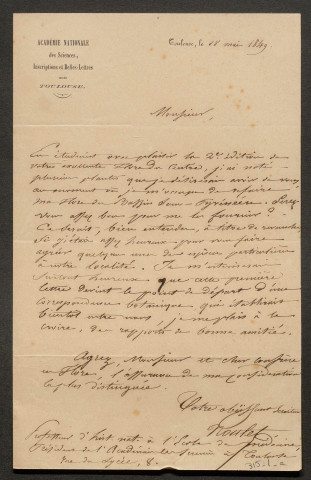 ACADÉMIE NATIONALE
des Sciences,
Inscriptions et Belles-Lettres
DE
TOULOUSE.
Toulouse, le 18 mai 1849
Monsieur,
En étudiant avec plaisir la 2e édition de
votre excellente Flore du Centre, j'ai noté
plusieurs plantes que je désirerais avoir de vous
au moment où je m'occupe de refaire
ma Flore du Bassin Sous-Pyrénéen. Serez
vous assez bon pour me les fournir ?
Ce serait, bien entendu, à titre de revanche
si j'étais assez heureux pour vous faire
agréer quelques unes de espèces particulières
à notre localité. Je m'estimerais
surtout heureux que cette première
lettre devint le point de départ d'une
correspondance botanique, qui établirait
bientôt entre nous, je me plais à le
croire, des rapports de bonne amitié.
Agréez Monsieur et cher confrère
en Flore, l'assurance de ma considération
la plus distinguée.
Votre obéissant serviteur
Noulet
Professeur d'hist. nat. à l'École de
Président de l'Académie des Sciences de Toulouse
rue du Lycée, 8.